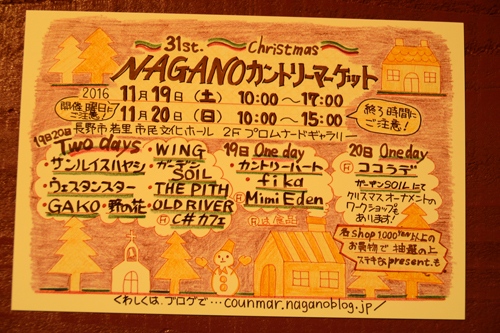 31st. Christmas
NAGANOカントリーマーケット
2016 11月19日(土) 10:00〜17:00
開催曜日にご注意!
11月20日(日) 10:00〜15:00
終了時間にご注意!
長野市若里市民文化ホール 2Fプロムナードギャラリー
19日20日 Two days
・サンルイスハヤシ
・ウェスタンスター
・GAKO・野の花
・WING
・ガーデンSOIL
・THE PITH
・OLD RIVER
・C#カフェ
19日 One day
・カントリーハート
・fika
・Mimi Eden
Ⓕは食品
20日 One day
Ⓕココラデ
ガーデンSOILにて
クリスマスオーナメントの
ワークショップも
あります!
各shop1000yen以上の
お買物で抽選の上
ステキなpresentも
くわしくは、ブログで…counmar.naganoblog.jp/